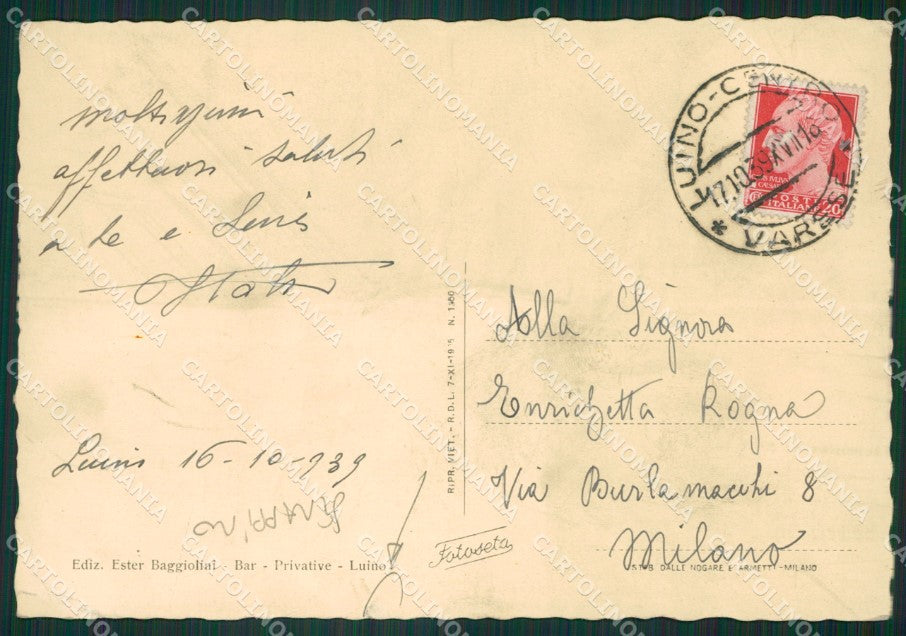 affettuosi saluti
a te e
Luino 16-10-939
Ediz. Ester Baggiolini - Bar - Privative - Luino
RIPR. VIET. - R.D.L. 7-XI-1925 N. 1950
Fotoseta
LUINO-CENTRO
17.10.39 XVII 18
* VARESE *
POSTE
ITALIANE
Alla Signora
Enrichetta Rogna
Via Burlamacchi 8
Milano
STAB. DALLE NOGARE E ARMETTI - MILANO
CARTOLINOMANIA